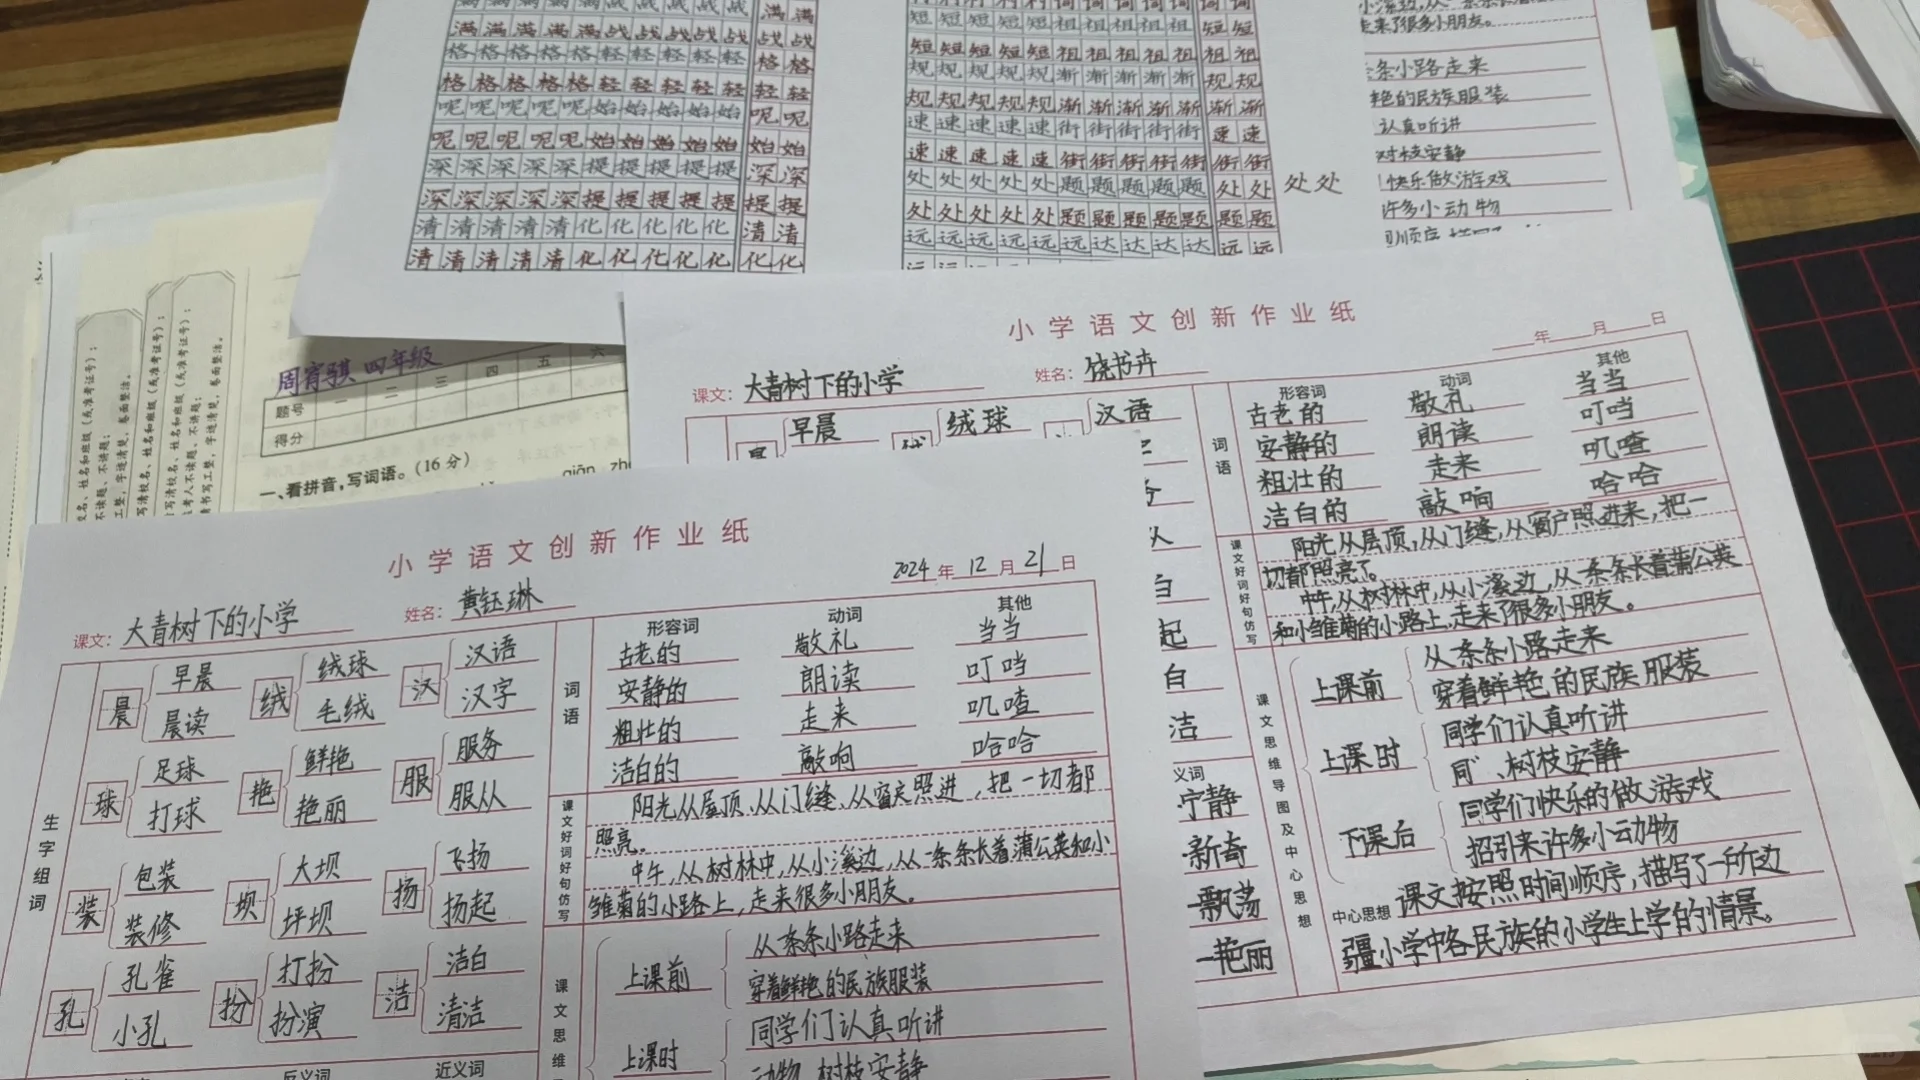 满满满满满战战战战战满满
满满满满满战战战战战战战
格格格格格轻轻轻轻轻格格
格格格格格轻轻轻轻轻轻轻
呢呢呢呢呢始始始始始呢呢
呢呢呢呢呢始始始始始始始
深深深深深提提提提提深深
深深深深深提提提提提提提
清清清清清化化化化化清清
清清清清清化化化化化化化
短短短短短祖祖祖祖祖短短
短短短短短祖祖祖祖祖祖祖
规规规规规渐渐渐渐渐规规
规规规规规渐渐渐渐渐渐渐
速速速速速街街街街街速速
速速速速速街街街街街街街
处处处处处题题题题题处处 处处
处处处处处题题题题题题题
远远远远远达达达达达远远
走来了很多小朋友。
条条小路走来
艳的民族服装
认真听讲
树枝安静
快乐做游戏
许多小动物
周宵骐 四年级
题号 一 二 三 四 五 六
得分
一、看拼音,写词语。(16分)
小学语文创新作业纸
年 月 日
课文: 大青树下的小学 姓名: 饶书卉
早晨 绒球 汉语
词语
形容词 动词 其他
古老的 敬礼 当当
安静的 朗读 叮当
粗壮的 走来 叽喳
洁白的 敲响 哈哈
课文好词好句仿写
阳光从屋顶,从门缝,从窗户照进来,把一
切都照亮了。
中午,从树林中,从小溪边,从一条条长着蒲公英
和小雏菊的小路上,走来了很多小朋友。
课文思维导图及中心思想
上课前 从条条小路走来
穿着鲜艳的民族服装
上课时 同学们认真听讲
树枝安静
下课后 同学们快乐的做游戏
招引来许多小动物
中心思想 课文按照时间顺序,描写了一所边
疆小学中各民族的小学生上学的情景。
起
白
洁
义词
宁静
新奇
飘荡
艳丽
小学语文创新作业纸
2024年12月21日
课文: 大青树下的小学 姓名: 黄钰琳
生字组词
晨 早晨 晨读
绒 绒球 毛绒
汉 汉语 汉字
球 足球 打球
艳 鲜艳 艳丽
服 服务 服从
装 包装 装修
坝 大坝 坪坝
扬 飞扬 扬起
孔 孔雀 小孔
扮 打扮 扮演
洁 洁白 清洁
反义词 近义词
词语
形容词 动词 其他
古老的 敬礼 当当
安静的 朗读 叮当
粗壮的 走来 叽喳
洁白的 敲响 哈哈
课文好词好句仿写
阳光从屋顶、从门缝、从窗户照进,把一切都
照亮。
中午,从树林中,从小溪边,从一条条长着蒲公英和小
雏菊的小路上,走来很多小朋友。
课文思维
上课前 从条条小路走来
穿着鲜艳的民族服装
上课时 同学们认真听讲
动物、树枝安静